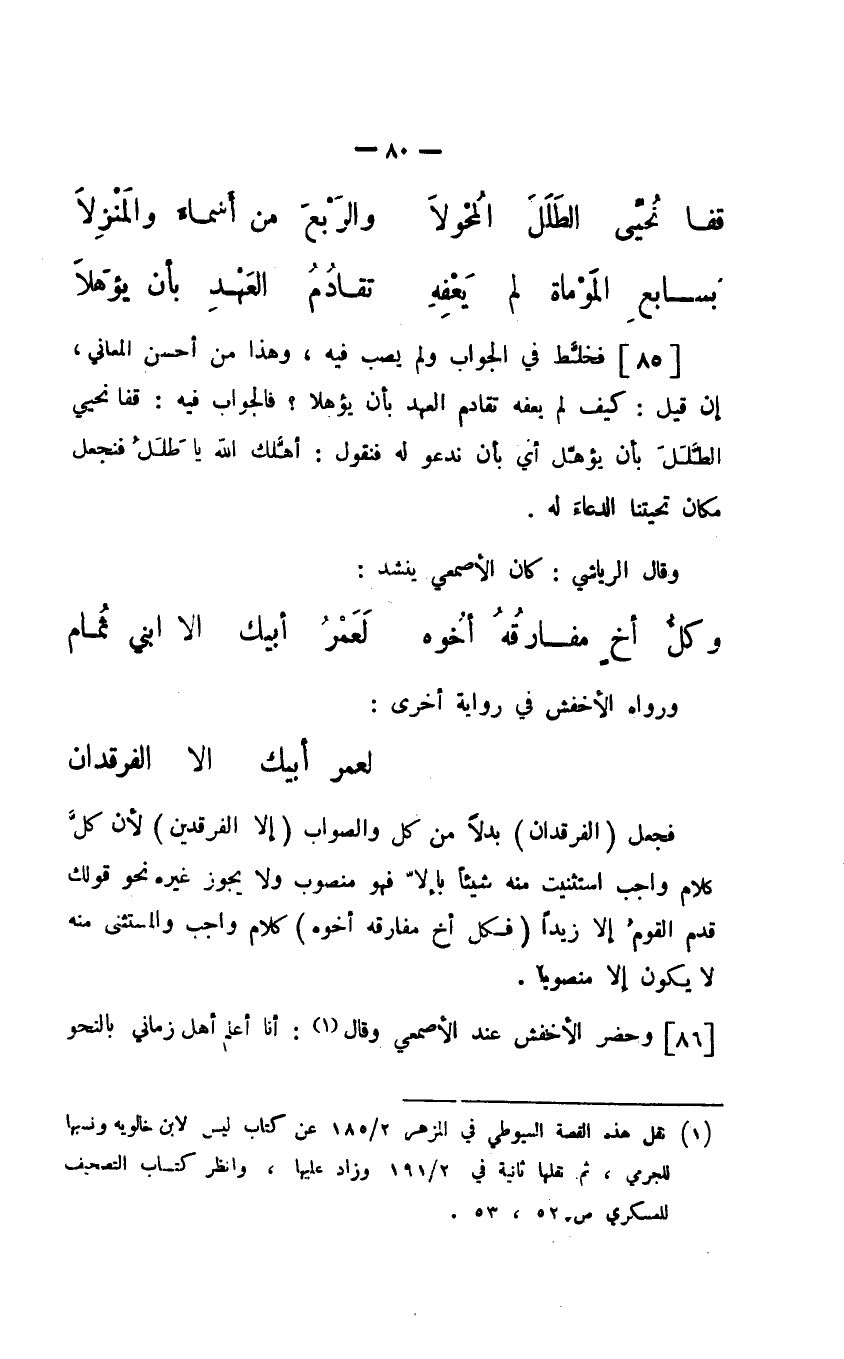 — ٨٠ —
قفا نُحَيّي الطَلَلَ المُحْوِلاَ والرَبْعَ من أَسْمَاءَ والمَنْزِلاَ
بسابعِ المَوْماة لم يَعْفِهِ تقادُمُ العَهْدِ بأن يؤهَلاَ
[٨٥] فخلَّط في الجواب ولم يصب فيه ، وهذا من أحسن المعاني ،
إن قيل : كيف لم يعفه تقادم العهد بأن يؤهلا ؟ فالجواب فيه : قفا نحيي
الطَّلَلَ بأن يؤهّل أي بأن ندعو له فنقول : أهَّلك الله يا طَلَلُ فنجعل
مكان تحيتنا الدعاءَ له .
وقال الرياشي : كان الأصمعي ينشد :
وكلُّ أخٍ مفارقُهُ أخُوه لَعَمْرُ أبيك الا ابني شُمام
ورواه الأخفش في رواية أخرى :
لعمر أبيك الا الفرقدان
فجعل ( الفرقدان ) بدلاً من كل والصواب ( إلا الفرقدين ) لأن كلَّ
كلام واجب استثنيت منه شيئاً بإلاّ فهو منصوب ولا يجوز غيره نحو قولك
قدم القومُ إلا زيداً ( فكل أخ مفارقه أخوه ) كلام واجب والمستثنى منه
لا يكون إلا منصوباً .
[٨٦] وحضر الأخفش عند الأصمعي وقال (١) : أنا أعلم أهل زماني بالنحو
(١) نقل هذه القصة السيوطي في المزهر ١٨٥/٢ عن كتاب ليس لابن خالويه ونسبها
للجرمي ، ثم نقلها ثانية في ١٩١/٢ وزاد عليها ، وانظر كتاب التصحيف
للعسكري ص ٥٢ ، ٥٣ .